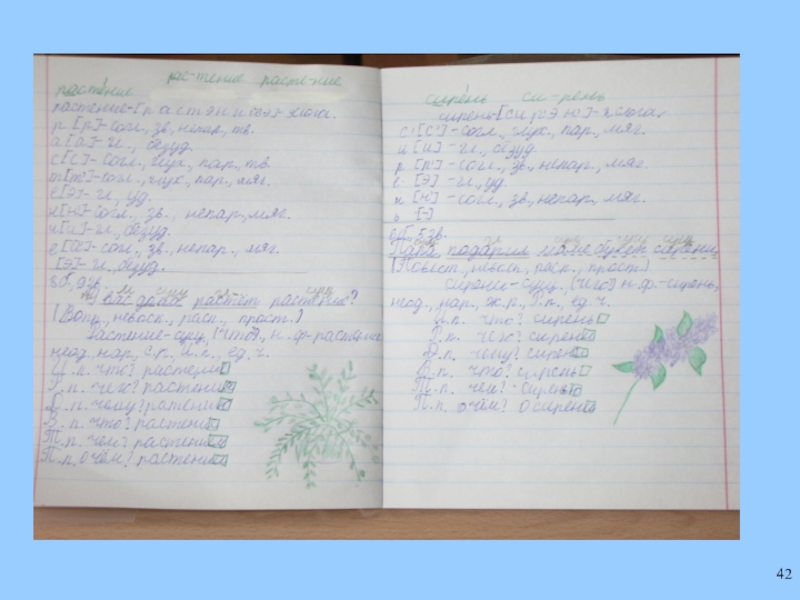 рас-тение расте-ние
растение
растение-[р а с т э н и й'э]- слога.
р [р]-согл., зв., непар., тв.
а [а]-гл., безуд.
с [с]- согл., глух., пар., тв.
т [т']-согл., глух., пар., мяг.
е [э]- гл., уд.
н [н']-согл., зв., непар., мяг.
и [и]-гл., безуд.
е [й']- согл., зв., непар., мяг.
[э]-гл., безуд.
8б., 9зв.
м сущ гл. сущ
вас дома растёт растение?
(Вопр., невоск., расп., прост.)
Растение-сущ., (что?), н. ф.-растение
неод. нар., с.р., И.п., ед. ч.
И.п. что? растение
Р.п. чего? растения
Д.п. чему? ратению
В.п. что? растение
Т.п. чем? растением
П.п. о чём? растении
сирень си-рень
сирень-[с'ир'эн']- слога.
с [с']-согл., глух., пар., мяг.
и [и] - гл., безуд.
р [р'] - согл., зв., непар., мяг.
е [э] - гл., уд.
н [н'] - согл., зв., непар., мяг.
ь [-]
6б., 5 зв.
Папа подарил маме букет сирени
(Повест., невосп., расп., прост.)
сирени-сущ., (чего?) н.ф.-сирень,
неод., нар., ж.р., Р.п., ед. ч.
И.п. что? сирень
Р.п. чего? сирени
Д.п. чему? сирени
В.п. что? сирень
Т.п. чем? сирень
П.п. о чём? о сирени
42